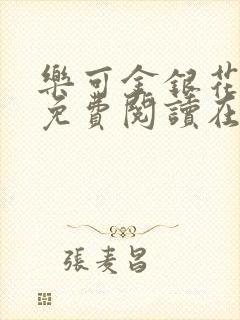 樂可金銀花
免費閱讀在
張麦昌